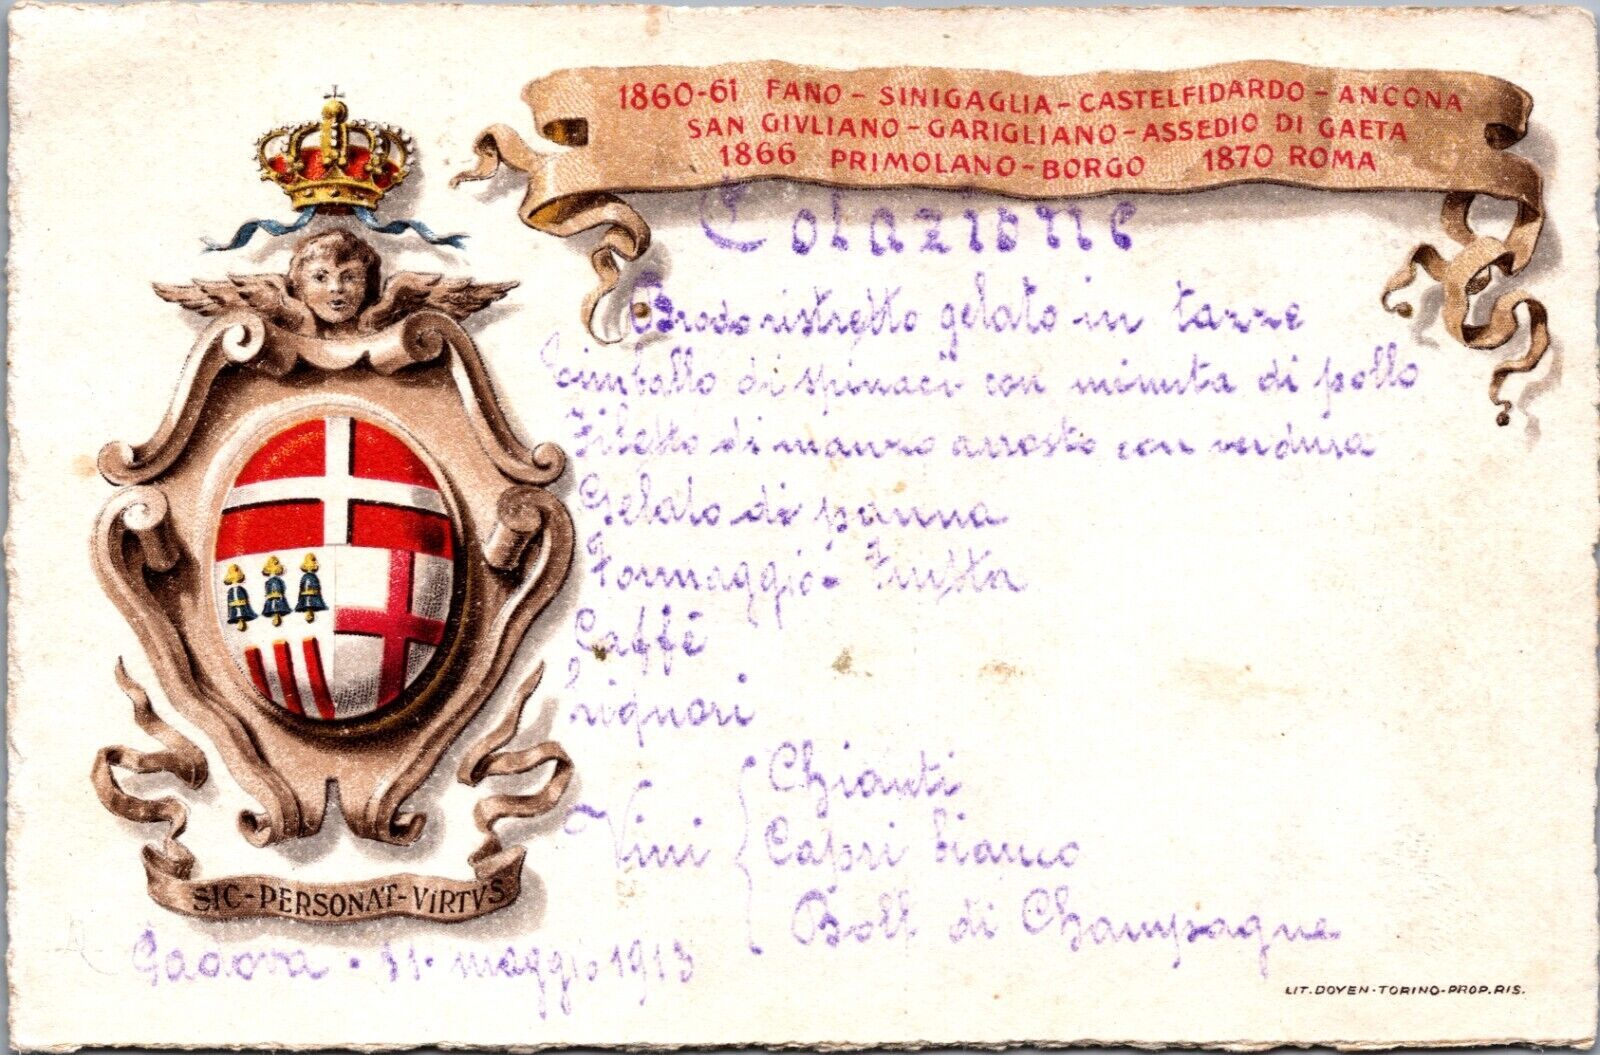 1860-61 FANO - SINIGAGLIA - CASTELFIDARDO - ANCONA
SAN GIVLIANO - GARIGLIANO - ASSEDIO DI GAETA
1866 PRIMOLANO - BORGO 1870 ROMA
Colazione
Brodo ristretto gelato in tazze
Timballo di spinaci con minuta di pollo
Filetto di manzo arrosto con verdura
Gelato di panna
Formaggio - Frutta
Caffè
Liquori
Vini { Chianti
Capri bianco
Bott di Champagne
SIC-PERSONAT-VIRTVS
Padova - 11 - maggio 1913
LIT. DOYEN - TORINO - PROP. RIS.